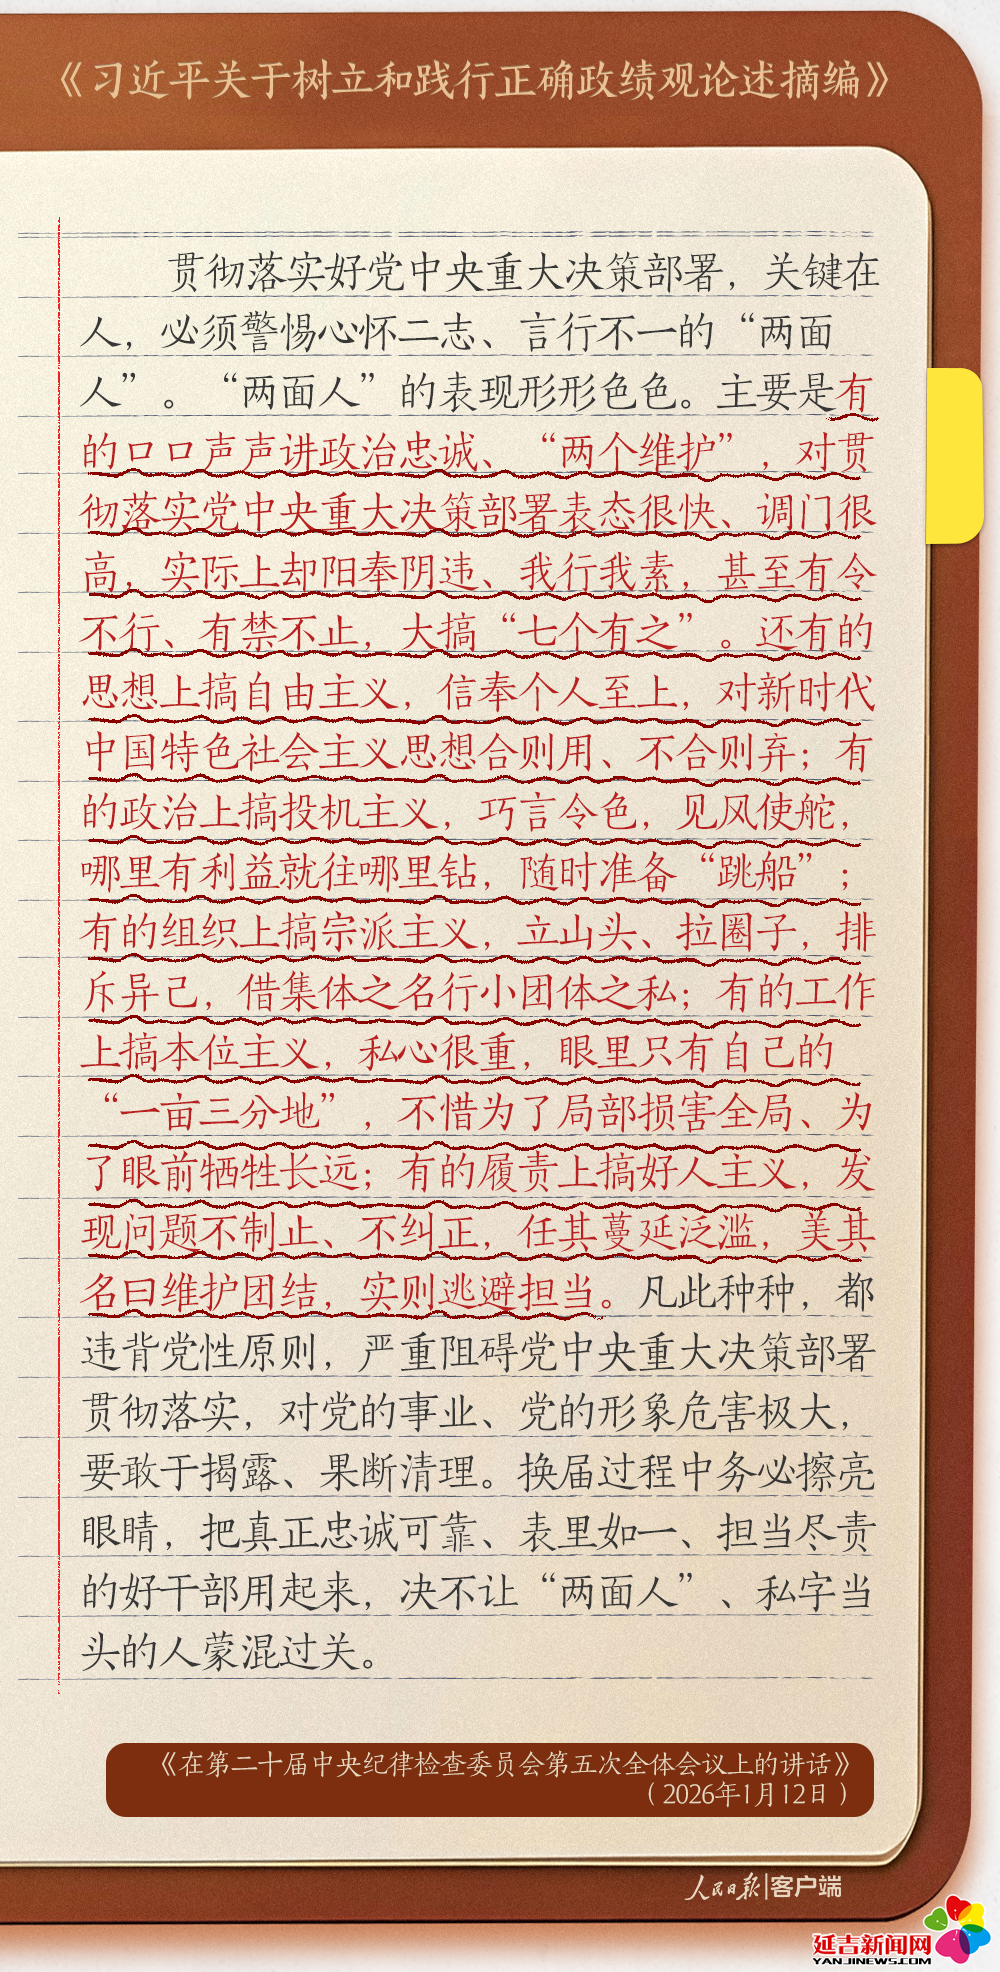 《习近平关于树立和践行正确政绩观论述摘编》
贯彻落实好党中央重大决策部署，关键在
人，必须警惕心怀二志、言行不一的“两面
人”。“两面人”的表现形形色色。主要是有
的口口声声讲政治忠诚、“两个维护”，对贯
彻落实党中央重大决策部署表态很快、调门很
高，实际上却阳奉阴违、我行我素，甚至有令
不行、有禁不止，大搞“七个有之”。还有的
思想上搞自由主义，信奉个人至上，对新时代
中国特色社会主义思想合则用、不合则弃；有
的政治上搞投机主义，巧言令色，见风使舵，
哪里有利益就往哪里钻，随时准备“跳船”；
有的组织上搞宗派主义，立山头、拉圈子，排
斥异己，借集体之名行小团体之私；有的工作
上搞本位主义，私心很重，眼里只有自己的
“一亩三分地”，不惜为了局部损害全局、为
了眼前牺牲长远；有的履责上搞好人主义，发
现问题不制止、不纠正，任其蔓延泛滥，美其
名曰维护团结，实则逃避担当。凡此种种，都
违背党性原则，严重阻碍党中央重大决策部署
贯彻落实，对党的事业、党的形象危害极大，
要敢于揭露、果断清理。换届过程中务必擦亮
眼睛，把真正忠诚可靠、表里如一、担当尽责
的好干部用起来，决不让“两面人”、私字当
头的人蒙混过关。
《在第二十届中央纪律检查委员会第五次全体会议上的讲话》
（2026年1月12日）
人民日报|客户端
延吉新闻网
YANJINEWS.COM